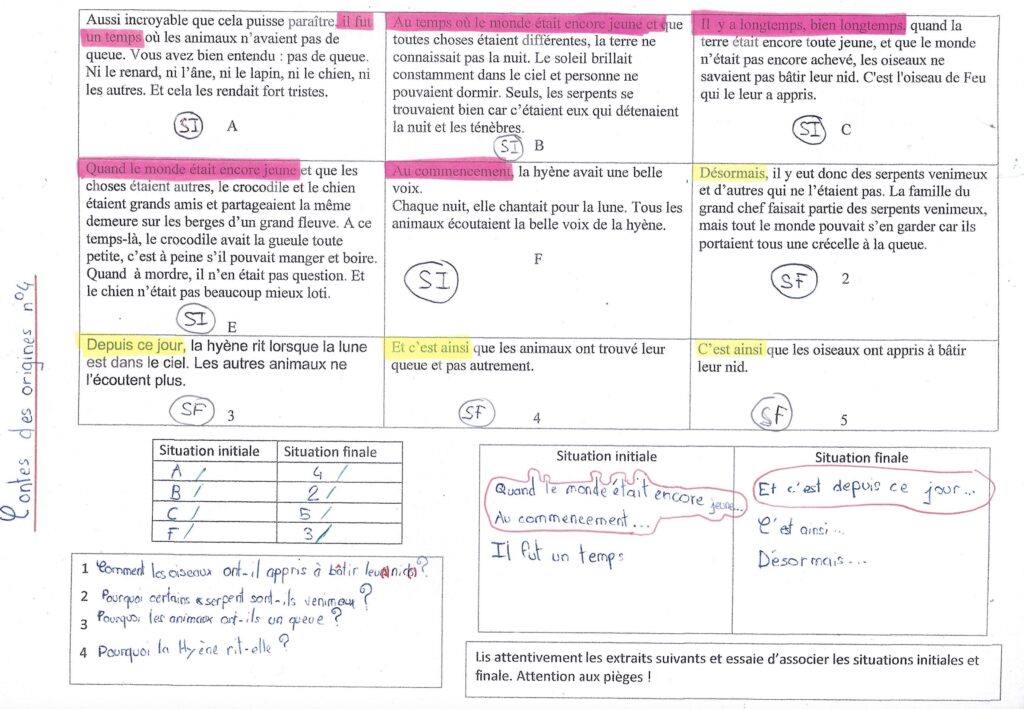 Contes des origines n°4
Aussi incroyable que cela puisse paraître, il fut
un temps où les animaux n'avaient pas de
queue. Vous avez bien entendu : pas de queue.
Ni le renard, ni l'âne, ni le lapin, ni le chien, ni
les autres. Et cela les rendait fort tristes.
SI A
Au temps où le monde était encore jeune et que
toutes choses étaient différentes, la terre ne
connaissait pas la nuit. Le soleil brillait
constamment dans le ciel et personne ne
pouvaient dormir. Seuls, les serpents se
trouvaient bien car c'étaient eux qui détenaient
la nuit et les ténèbres.
SI B
Il y a longtemps, bien longtemps, quand la
terre était encore toute jeune, et que le monde
n'était pas encore achevé, les oiseaux ne
savaient pas bâtir leur nid. C'est l'oiseau de Feu
qui le leur a appris.
SI C
Quand le monde était encore jeune et que les
choses étaient autres, le crocodile et le chien
étaient grands amis et partageaient la même
demeure sur les berges d'un grand fleuve. A ce
temps-là, le crocodile avait la gueule toute
petite, c'est à peine s'il pouvait manger et boire.
Quand à mordre, il n'en était pas question. Et
le chien n'était pas beaucoup mieux loti.
SI E
Au commencement, la hyène avait une belle
voix.
Chaque nuit, elle chantait pour la lune. Tous les
animaux écoutaient la belle voix de la hyène.
F
SI
Désormais, il y eut donc des serpents venimeux
et d'autres qui ne l'étaient pas. La famille du
grand chef faisait partie des serpents venimeux,
mais tout le monde pouvait s'en garder car ils
portaient tous une crécelle à la queue.
SF 2
Depuis ce jour, la hyène rit lorsque la lune
est dans le ciel. Les autres animaux ne
l'écoutent plus.
SF 3
Et c'est ainsi que les animaux ont trouvé leur
queue et pas autrement.
SF 4
C'est ainsi que les oiseaux ont appris à bâtir
leur nid.
SF 5
Situation initiale Situation finale
A 4
B 2
C 5
F 3
Situation initiale Situation finale
Quand le monde était encore jeune...
Au commencement...
Il fut un temps
Et c'est depuis ce jour...
C'est ainsi...
Désormais...
1 Comment les oiseaux ont-il appris à bâtir leur nid ?
2 Pourquoi certains serpent sont-ils venimeux ?
3 Pourquoi les animaux ont-ils un queue ?
4 Pourquoi la Hyène rit-elle ?
Lis attentivement les extraits suivants et essaie d'associer les situations initiales et
finale. Attention aux pièges !